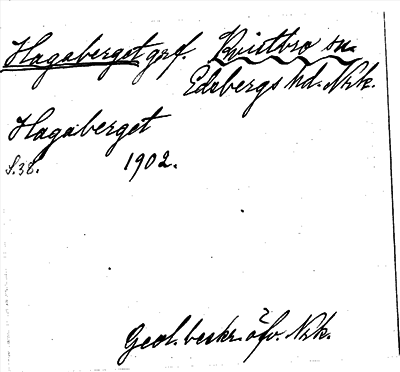 Hagaberget grf. Kvistbro sn.
Edsbergs hd. Nrk.
Hagaberget
S. 38. 1902.
Geol. beskr. öfv. Nrk.